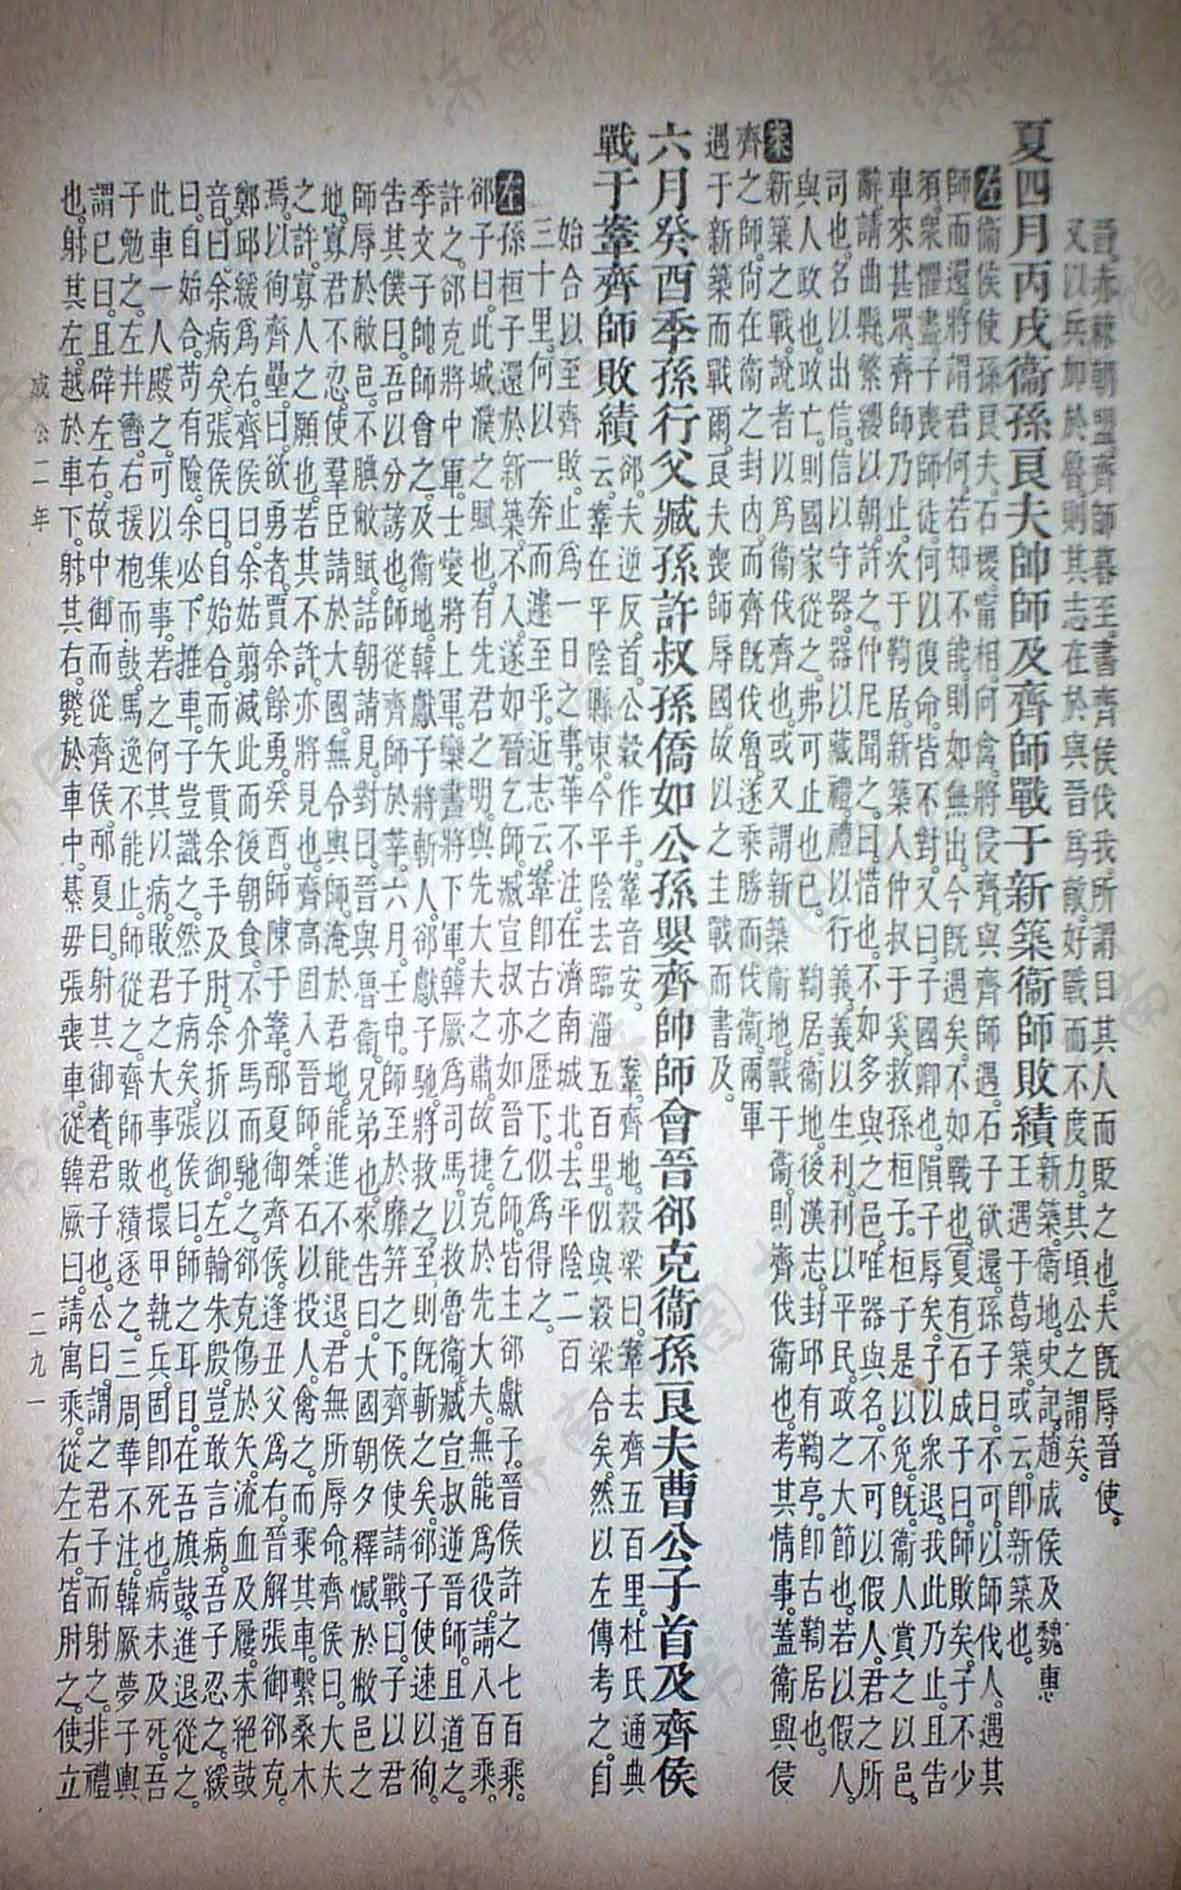 晉。赤棘朝盟。齊師暮至。書齊侯伐我。所謂因其人而貶之也。夫旣辱晉使。
又以兵加於魯。則其志在於與晉爲敵。好戰而不度力。其頃公之謂矣。
夏四月丙戌衞孫良夫帥師及齊師戰于新築衞師敗績
新築。衞地。史記。趙成侯及魏惠
王遇于葛築。或云。卽新築也。
左衞侯使孫良夫。石稷。甯相。向禽。將侵齊。與齊師遇。石子欲還。孫子曰。不可。以師伐人。遇其
師而還。將謂君何。若知不能。則如無出。今旣遇矣。不如戰也。(夏有)石成子曰。師敗矣。子不少
須。衆懼盡。子喪師徒。何以復命。皆不對。又曰。子國卿也。隕子辱矣。子以衆退。我此乃止。且告
車來甚眾。齊師乃止。次于鞫居。新築人仲叔于奚。救孫桓子。桓子是以免。旣。衞人賞之以邑。
辭。請曲縣繁纓以朝。許之。仲尼聞之。曰。惜也。不如多與之邑。唯器與名。不可以假人。君之所
司也。名以出信。信以守器。器以藏禮。禮以行義。義以生利。利以平民。政之大節也。若以假人。
與人政也。政亡。則國家從之。弗可止也已。鞫居。衞地。後漢志。封邱有鞫亭。卽古鞫居也。
案新築之戰。說者以爲衞伐齊也。或又謂新築衞地。戰于衞。則齊伐衞也。考其情事。蓋衞興侵
齊之師。尙在衞之封內。而齊旣伐魯。遂乘勝而伐衞。兩軍
遇于新築而戰爾。良夫喪師辱國。故以之主戰而書及。
六月癸酉季孫行父臧孫許叔孫僑如公孫嬰齊帥師會晉郤克衞孫良夫曹公子首及齊侯
戰于鞌齊師敗績
郤。夫逆反。首。公穀作手。鞌音安。 鞌。齊地。穀梁曰。鞌去齊五百里。杜氏通典
云。鞌在平陰縣東。今平陰去臨淄五百里。似與穀梁合矣。然以左傳考之。自
始合以至齊敗。止爲一日之事。華不注。在濟南城北。去平陰二百
三十里。何以一奔而遽至乎。近志云。鞌卽古之歷下。似爲得之。
左孫桓子還於新築。不入。遂如晉乞師。臧宣叔亦如晉乞師。皆主郤獻子。晉侯許之七百乘。
郤子曰。此城濮之賦也。有先君之明。與先大夫之肅。故捷。克於先大夫。無能爲役。請八百乘。
許之。郤克將中軍。士燮將上軍。欒書將下軍。韓厥爲司馬。以救魯衞。臧宣叔逆晉師。且道之。
季文子帥師會之。及衞地。韓獻子將斬人。郤獻子馳。將救之。至則旣斬之矣。郤子使速以徇。
告其僕曰。吾以分謗也。師從齊師於莘。六月。壬申。師至於靡笄之下。齊侯使請戰。曰。子以君
師辱於敝邑。不腆敝賦。詰朝請見。對曰。晉與魯衞。兄弟也。來告曰。大國朝夕釋憾於敝邑之
地。寡君不忍。使羣臣請於大國。無令輿師。淹於君地。能進不能退。君無所辱命。齊侯曰。大夫
之許。寡人之願也。若其不許。亦將見也。齊高固入晉師。桀石以投人。禽之。而乘其車。繫桑木
焉。以徇齊壘。曰。欲勇者。賈余餘勇。癸酉。師陳于鞌。邴夏御齊侯。逢丑父爲右。晉解張御郤克。
鄭邱緩爲右。齊侯曰。余姑翦滅此而後朝食。不介馬而馳之。郤克傷於矢。流血及屨。未絕鼓
音。曰。余病矣。張侯曰。自始合。而矢貫余手及肘。余折以御。左輪朱殷。豈敢言病。吾子忍之。緩
曰。自始合。苟有險。余必下推車。子豈識之。然子病矣。張侯曰。師之耳目。在吾旗鼓。進退從之。
此車一人殿之。可以集事。若之何其以病。敗君之大事也。擐甲執兵。固卽死也。病未及死。吾
子勉之。左幷轡。右援枹而鼓。馬逸不能止。師從之。齊師敗績。逐之。三周華不注。韓厥夢子輿
謂已曰。且辟左右。故中御而從齊侯。邴夏曰。射其御者。君子也。公曰。謂之君子而射之。非禮
也。射其左。越於車下。射其右。斃於車中。綦毋張喪車。從韓厥曰。請寓乘。從左右。皆肘之。使立
成公二年
二九一